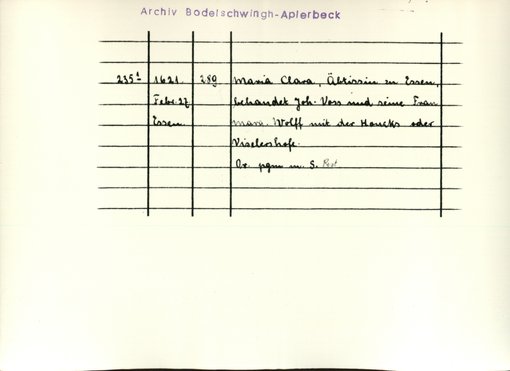 Archiv Bodelschwingh-Aplerbeck
235¹ 1621. 289 Maria Clara, Äbtissin zu Essen,
Febr. 27 behandet Joh. Voss und seine Frau
Essen. Marg. Wolff mit der Houcks oder
Viselershofe.
Or. pgm m. S.